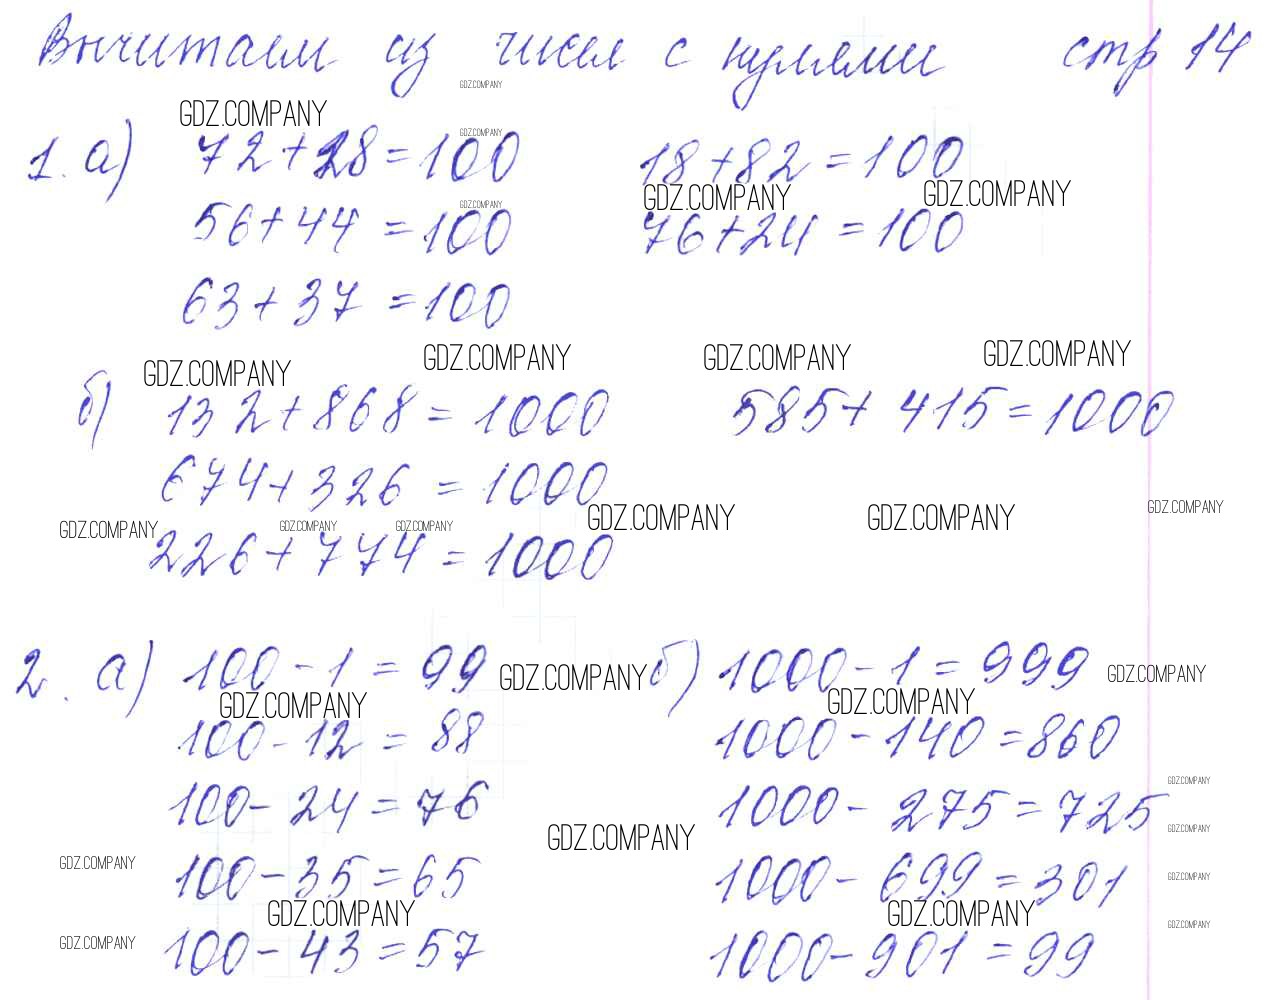 Вычитаем из чисел с нулями стр 14
GDZ.COMPANY
GDZ.COMPANY
GDZ.COMPANY
1. а) 72+28=100 18+82=100
GDZ.COMPANY GDZ.COMPANY GDZ.COMPANY
56+44=100 76+24=100
63+37=100
GDZ.COMPANY GDZ.COMPANY GDZ.COMPANY GDZ.COMPANY
б) 132+868=1000 585+415=1000
674+326=1000
GDZ.COMPANY GDZ.COMPANY GDZ.COMPANY GDZ.COMPANY GDZ.COMPANY GDZ.COMPANY
226+774=1000
2. а) 100-1=99 GDZ.COMPANY б) 1000-1=999 GDZ.COMPANY
GDZ.COMPANY GDZ.COMPANY
100-12=88 1000-140=860
GDZ.COMPANY
100-24=76 1000-275=725
GDZ.COMPANY GDZ.COMPANY
GDZ.COMPANY
100-35=65 1000-699=301 GDZ.COMPANY
GDZ.COMPANY GDZ.COMPANY GDZ.COMPANY
GDZ.COMPANY
100-43=57 1000-901=99